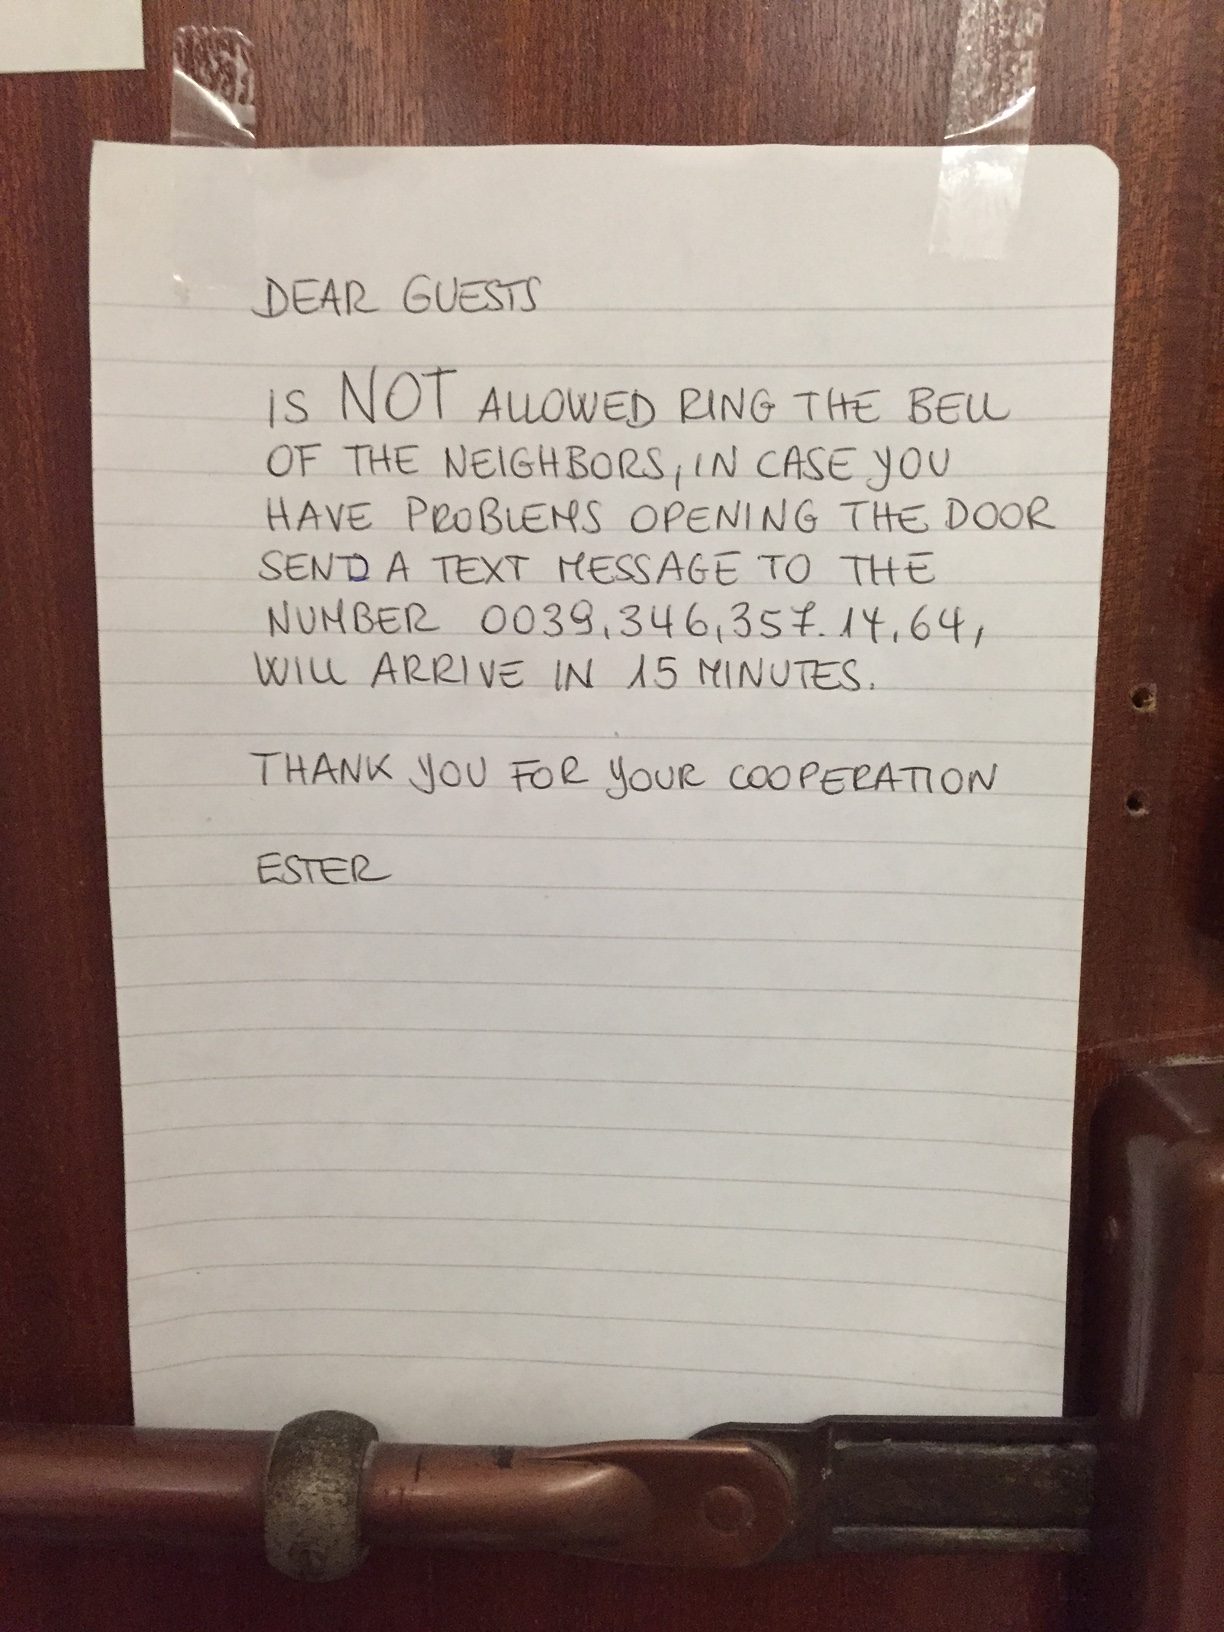 DEAR GUESTS
IS NOT ALLOWED RING THE BELL
OF THE NEIGHBORS, IN CASE YOU
HAVE PROBLEMS OPENING THE DOOR
SEND A TEXT MESSAGE TO THE
NUMBER 0039,346,357.14,64,
WILL ARRIVE IN 15 MINUTES.
THANK YOU FOR YOUR COOPERATION
ESTER